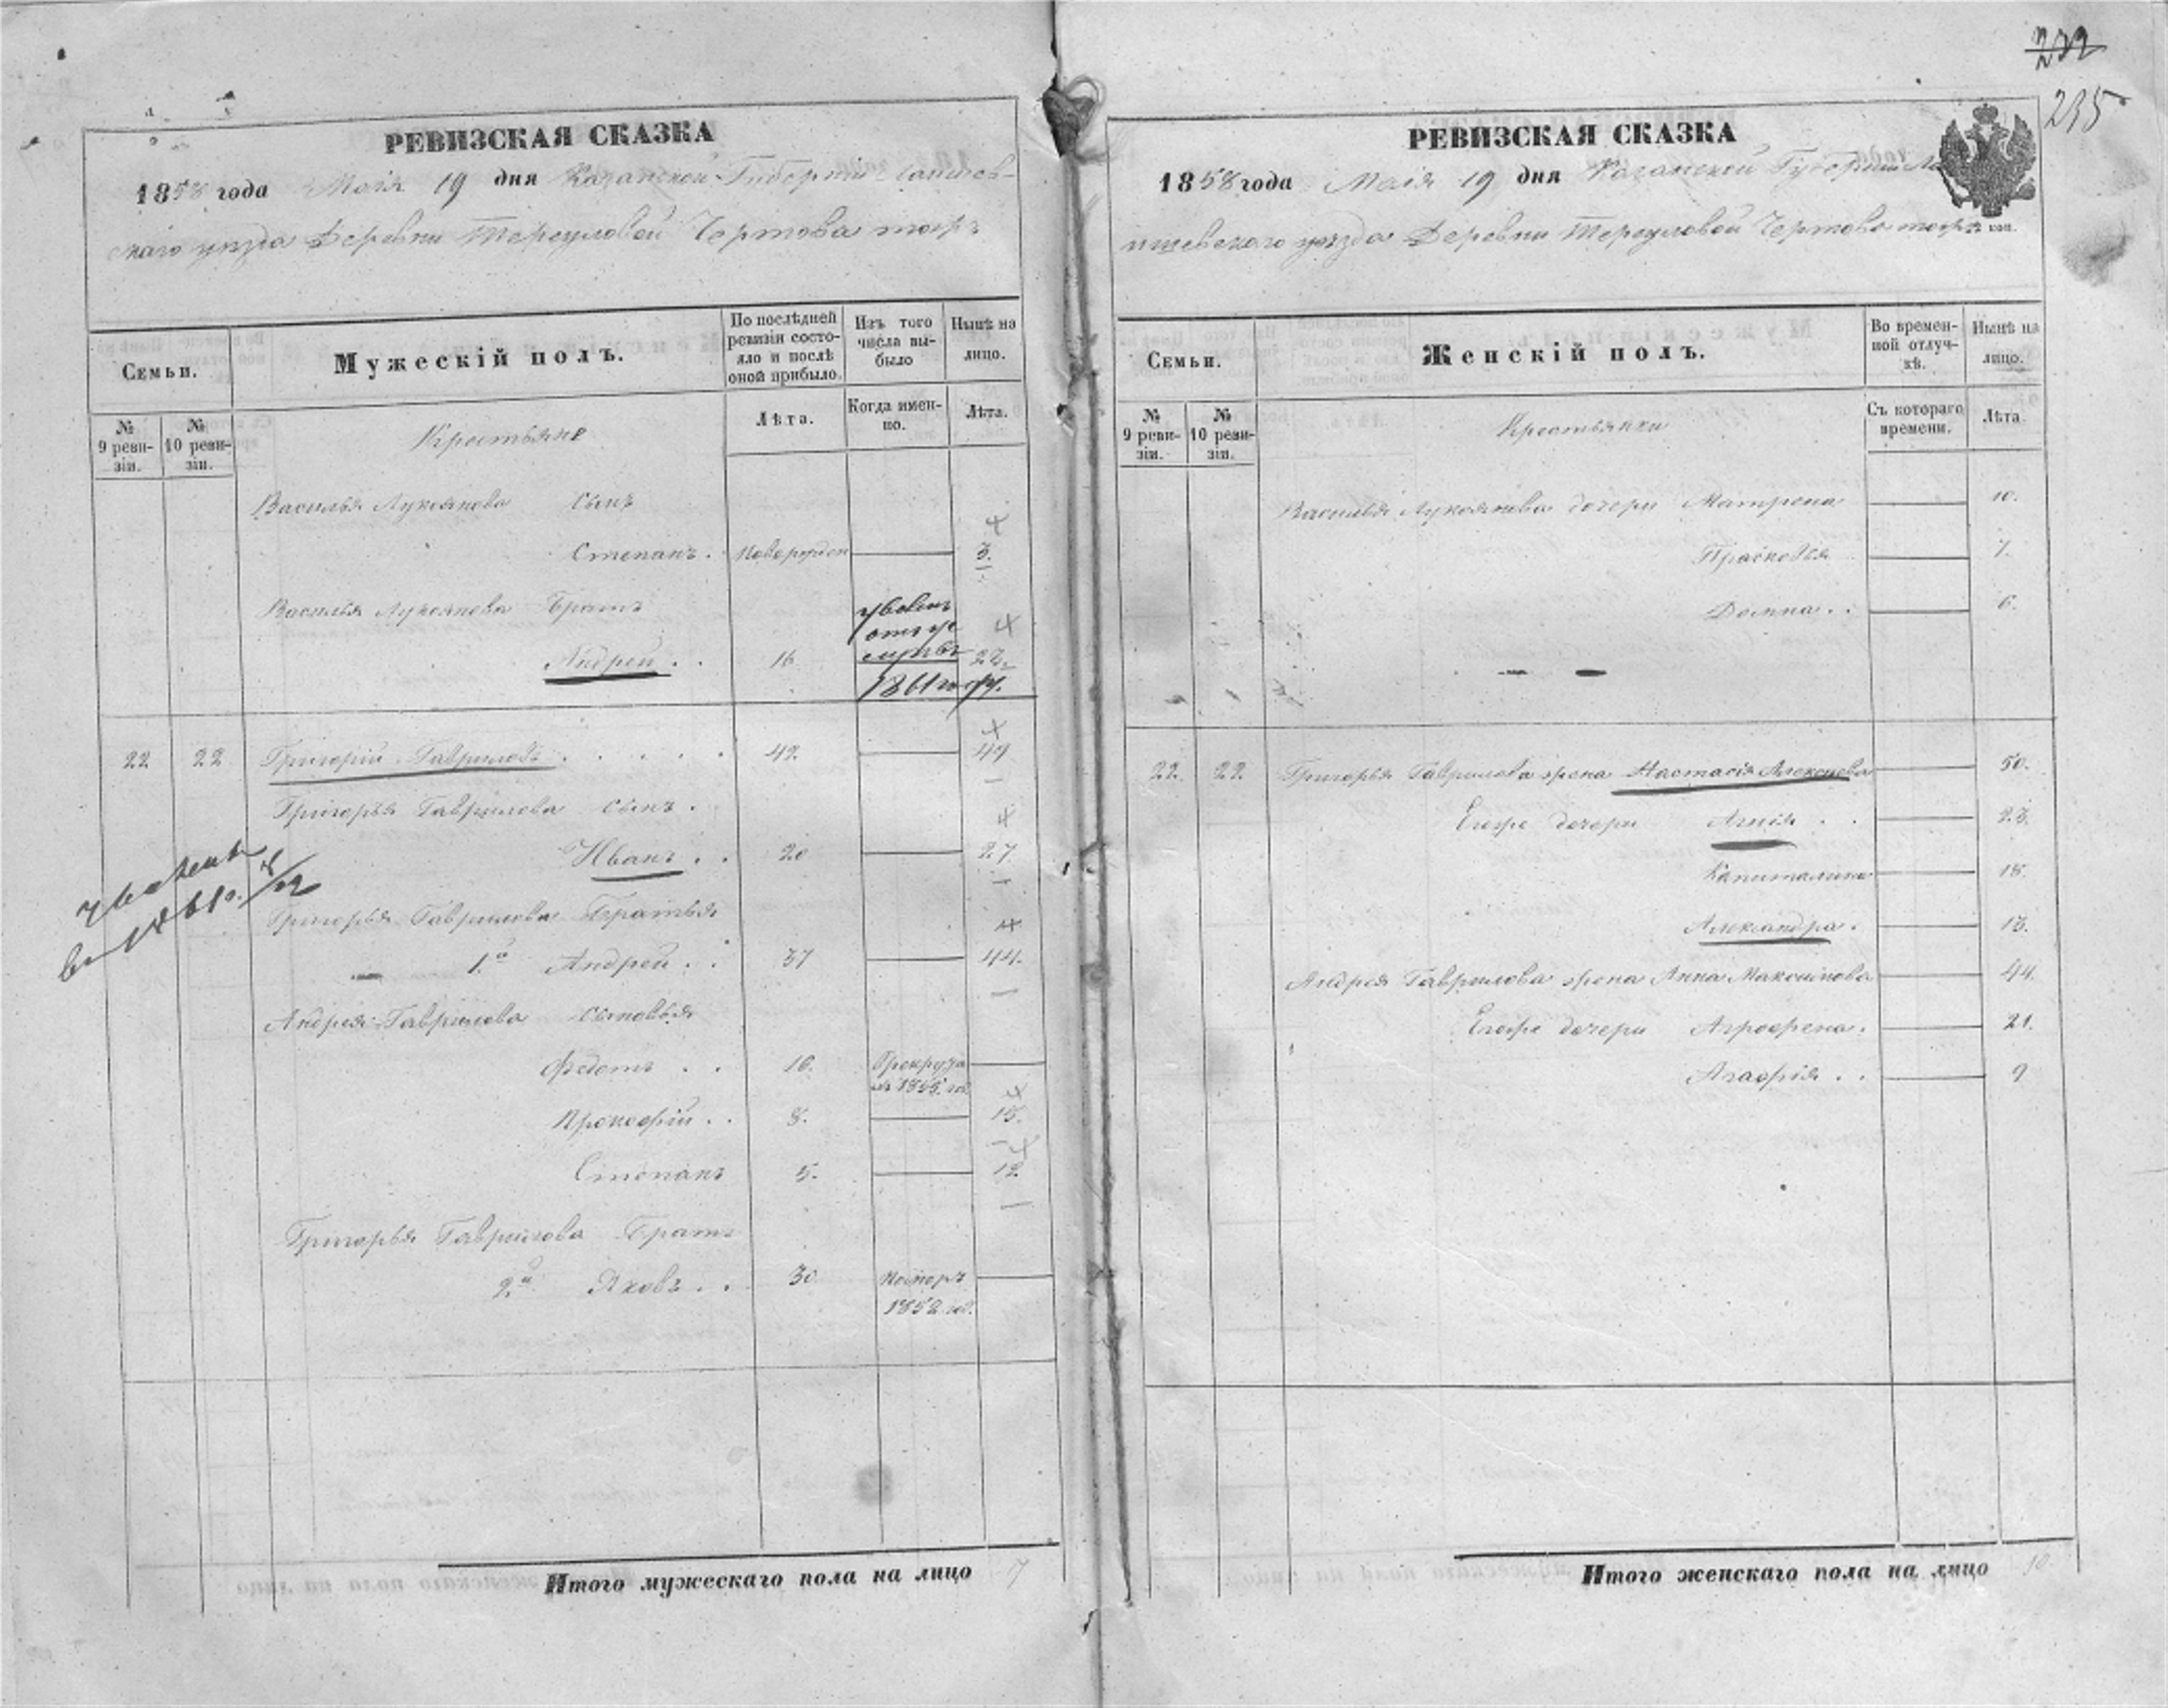 232
235
РЕВИЗСКАЯ СКАЗКА
1858 года Маія 19 дня Казанской Губерніи Лаишев-
скаго уезда Деревни Тереуловой Чертова тожъ
Семьи.
Мужескій полъ.
По послѣдней ревизіи состояло и послѣ оной прибыло.
Изъ того числа выбыло
Нынѣ на лицо.
№ 9 реви-зіи.
№ 10 реви-зіи.
Крестьяне
Лѣта.
Когда имен-но.
Лѣта.
Василья Лукоянова сынъ
Степанъ. новорожден 3.
Василья Лукоянова Братъ
Андрей . . 16
1861 году.
22 22 Григорій Гавриловъ . . . . . 42 49
Григорья Гаврилова сынъ .
Иванъ . . 20 27
Григорья Гаврилова Братья
1й Андрей . . 37 44.
Андрея Гаврилова сыновья
Федотъ . .
в 1855. го
Прокофій . . 8. 15.
Степанъ 5. 12
Григорья Гаврилова Братъ
2й Яковъ . . 30 померъ
1852 го.
Итого мужескаго пола на лицо 7
РЕВИЗСКАЯ СКАЗКА
1858 года Маія 19 дня Казанской Губерніи Ла
ишевского уезда Деревни Тереуловой Чертово тожъ коп.
Семьи.
Женскій полъ.
Во времен-ной отлуч-кѣ.
Нынѣ на лицо.
№ 9 реви-зіи.
№ 10 реви-зіи.
Крестьянки
Съ котораго времени.
Лѣта.
Василья Лукоянова дочери Матрена 10.
Прасковья 7.
Домна . . 6.
22. 22. Григорья Гаврилова жена Настасія Алексеева 50.
Егоже дочери Агнія . . 23.
Капиталина 18.
Александра . 13.
Андрея Гаврилова жена Анна Максимова 44.
Егоже дочери Агрофена . 21.
Агафія . . 9
Итого женскаго пола на лицо 10